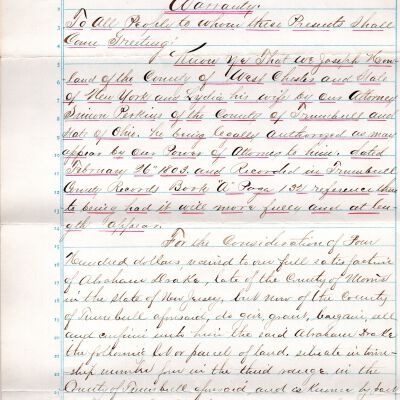 Warranty.
To All People to whom these Presents Shall
Come Greeting;
Know Ye That we Joseph How-
land of the County of West Chester and State
of New York and Lydia his wife by our Attorney
Simon Perkins of the County of Trumbull and
State of Ohio. he being legally authorized as may
appear by our Power of Attorney to him, dated
February 26th 1803. and Recorded in Trumbull
County Records Book "A" Page 132 reference there
to being had it will more fully and at len-
gth appear.
For the Consideration of Four
Hundred dollars, received to our full satisfaction
of Abraham Drake, late of the County of Morris
in the State of New Jersey, but now of the County
of Trumbull aforsaid, do give, grant, bargain, sell
and confirm unto him the said Abraham Drake
the following lot or parcel of land, situate in town-
ship number four in the third range in the
County of Trumbull aforsaid, and is known by